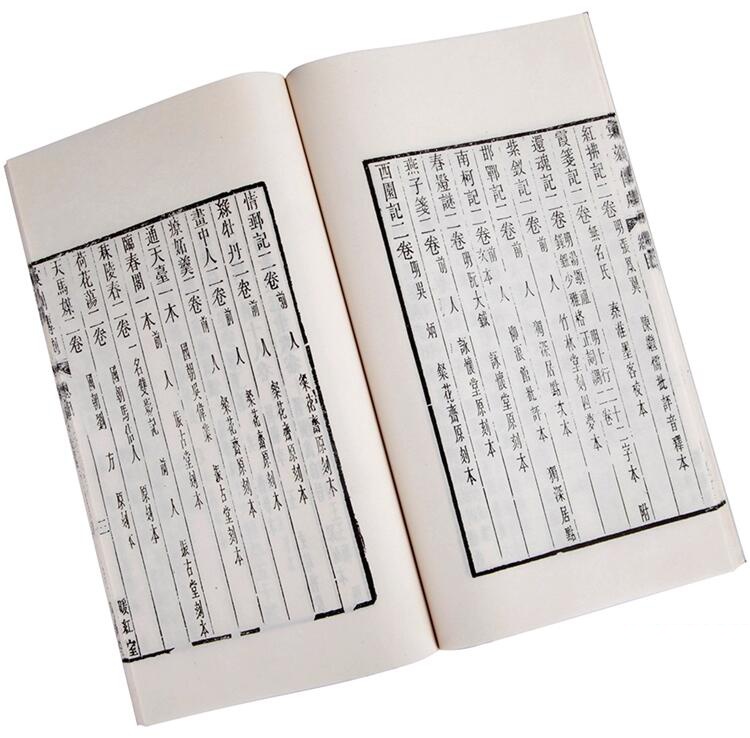 紅拂記二卷 明張鳳翼 陳繼儒批評音釋本
霞箋記二卷 無名氏 秦淮墨客校本
還魂記二卷 明湯顯祖 明 十行二十二字本 附
格正詞調二卷 竹林堂刻四夢本 獨深居點
紫釵記二卷 前人 獨深居點次本
邯鄲記二卷 前人 柳浪館批評本
南柯記二卷 前人
春燈謎二卷 前人 詠懷堂原刻本
燕子箋二卷 明阮大鋮 詠懷堂原刻本
西園記二卷 明吳炳 粲花齋原刻本
情郵記二卷 前人 粲花齋原刻本
綠牡丹二卷 前人 粲花齋原刻本
畫中人二卷 前人 粲花齋原刻本
療妒羹二卷 前人 粲花齋原刻本
通天臺一本 國朝吳偉業 振古堂刻本
臨春閣一本 前人 振古堂刻本
秣陵春二卷 一名雙影記 前人 振古堂刻本
荷花蕩二卷 國朝馬佶人 原刻本
天馬媒二卷 國朝劉方 原刻本
暖紅室